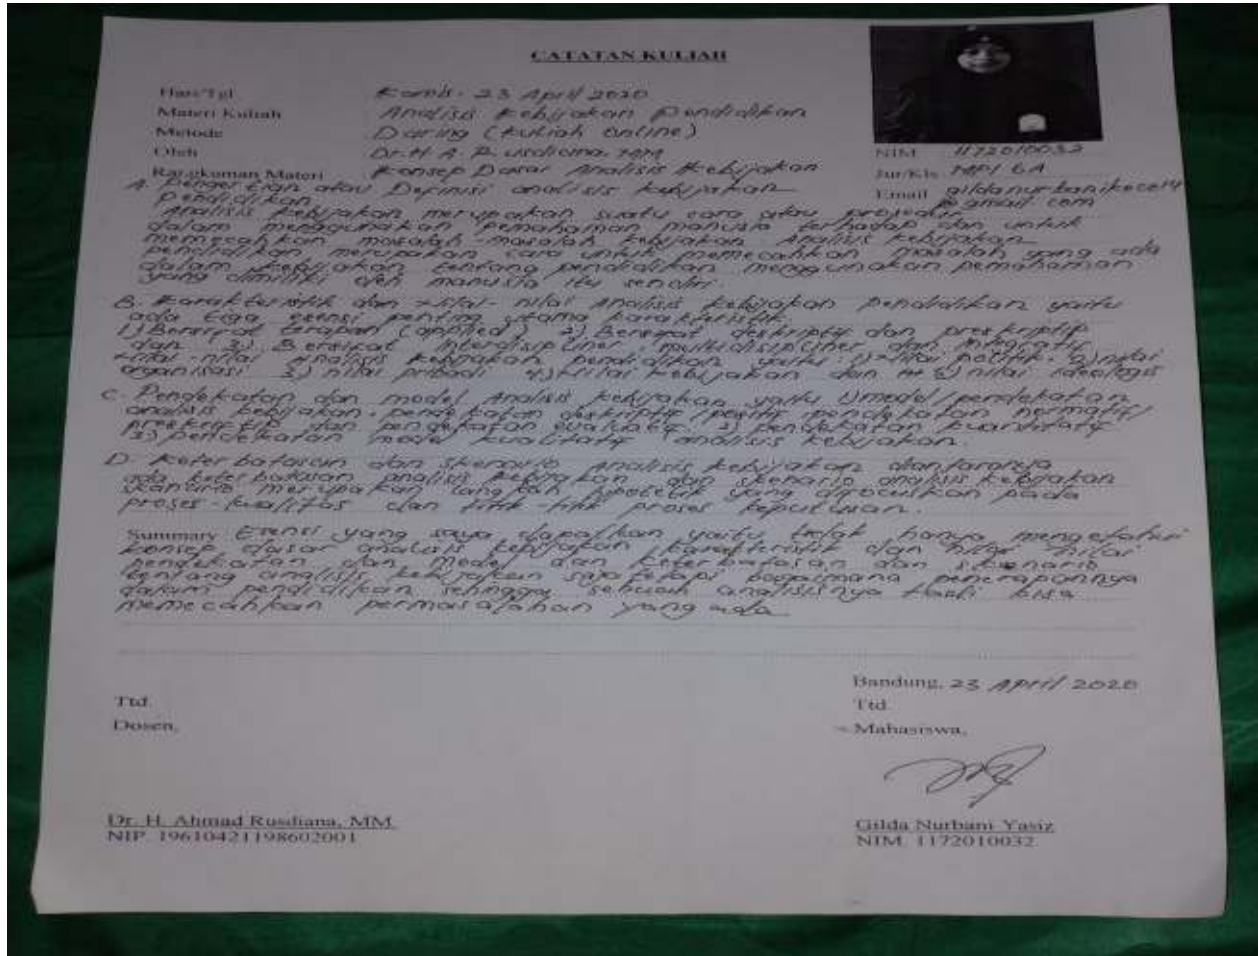 CATATAN KULIAH
Hari/Tgl Kamis. 23 April 2020
Materi Kuliah Analisis Kebijakan Pendidikan
Metode Daring (kuliah online)
Oleh Dr. H. A. Rusdiana, MM
NIM 1172010032
Rangkuman Materi Konsep Dasar Analisis Kebijakan
Jur/Kls MPI 6A
Email gildanurbanikece14
@gmail.com
A. Pengertian atau Definisi analisis kebijakan
Pendidikan
Analisis kebijakan merupakan suatu cara atau prosedur
dalam menggunakan pemahaman manusia terhadap dan untuk
memecahkan masalah-masalah kebijakan. Analisis kebijakan
pendidikan merupakan cara untuk memecahkan masalah yang ada
dalam kebijakan tentang pendidikan menggunakan pemahaman
yang dimiliki oleh manusia itu sendiri.
B. Karakteristik dan Nilai-nilai Analisis kebijakan pendidikan yaitu
ada tiga esensi penting utama karakteristik
1) Bersifat terapan (applied) 2) Bersifat deskriptif dan preskriptif
dan 3) Bersifat Interdisipliner multidisipliner dan Integratif
Nilai-nilai Analisis kebijakan pendidikan yaitu 1) Nilai politik. 2) nilai
organisasi 3) nilai pribadi 4) Nilai kebijakan dan 5) nilai ideologis
C. Pendekatan dan model Analisis kebijakan yaitu 1) model/pendekatan
analisis kebijakan. pendekatan deskriptif/positif pendekatan normatif/
preskriptif dan pendekatan evaluatif. 2) pendekatan kuantitatif
3) pendekatan model kualitatif analisis kebijakan.
D. Keterbatasan dan skenario Analisis kebijakan diantaranya
ada keterbatasan analisis kebijakan dan skenario analisis kebijakan
skenario merupakan langkah hipotetik yang difocuskan pada
proses-kualitas dan titik-titik proses keputusan.
Summary Esensi yang saya dapatkan yaitu tidak hanya mengetahui
konsep dasar analisis kebijakan karakteristik dan nilai nilai
pendekatan dan model dan keterbatasan dan skenario
tentang analisis kebijakan saja tetapi bagaimana penerapannya
dalam pendidikan sehingga sebuah analisisnya hasil bisa
memecahkan permasalahan yang ada
Bandung, 23 April 2020
Ttd. Ttd.
Dosen, Mahasiswa,
Dr. H. Ahmad Rusdiana, MM. Gilda Nurbani Yasiz
NIP. 196104211198602001 NIM. 1172010032